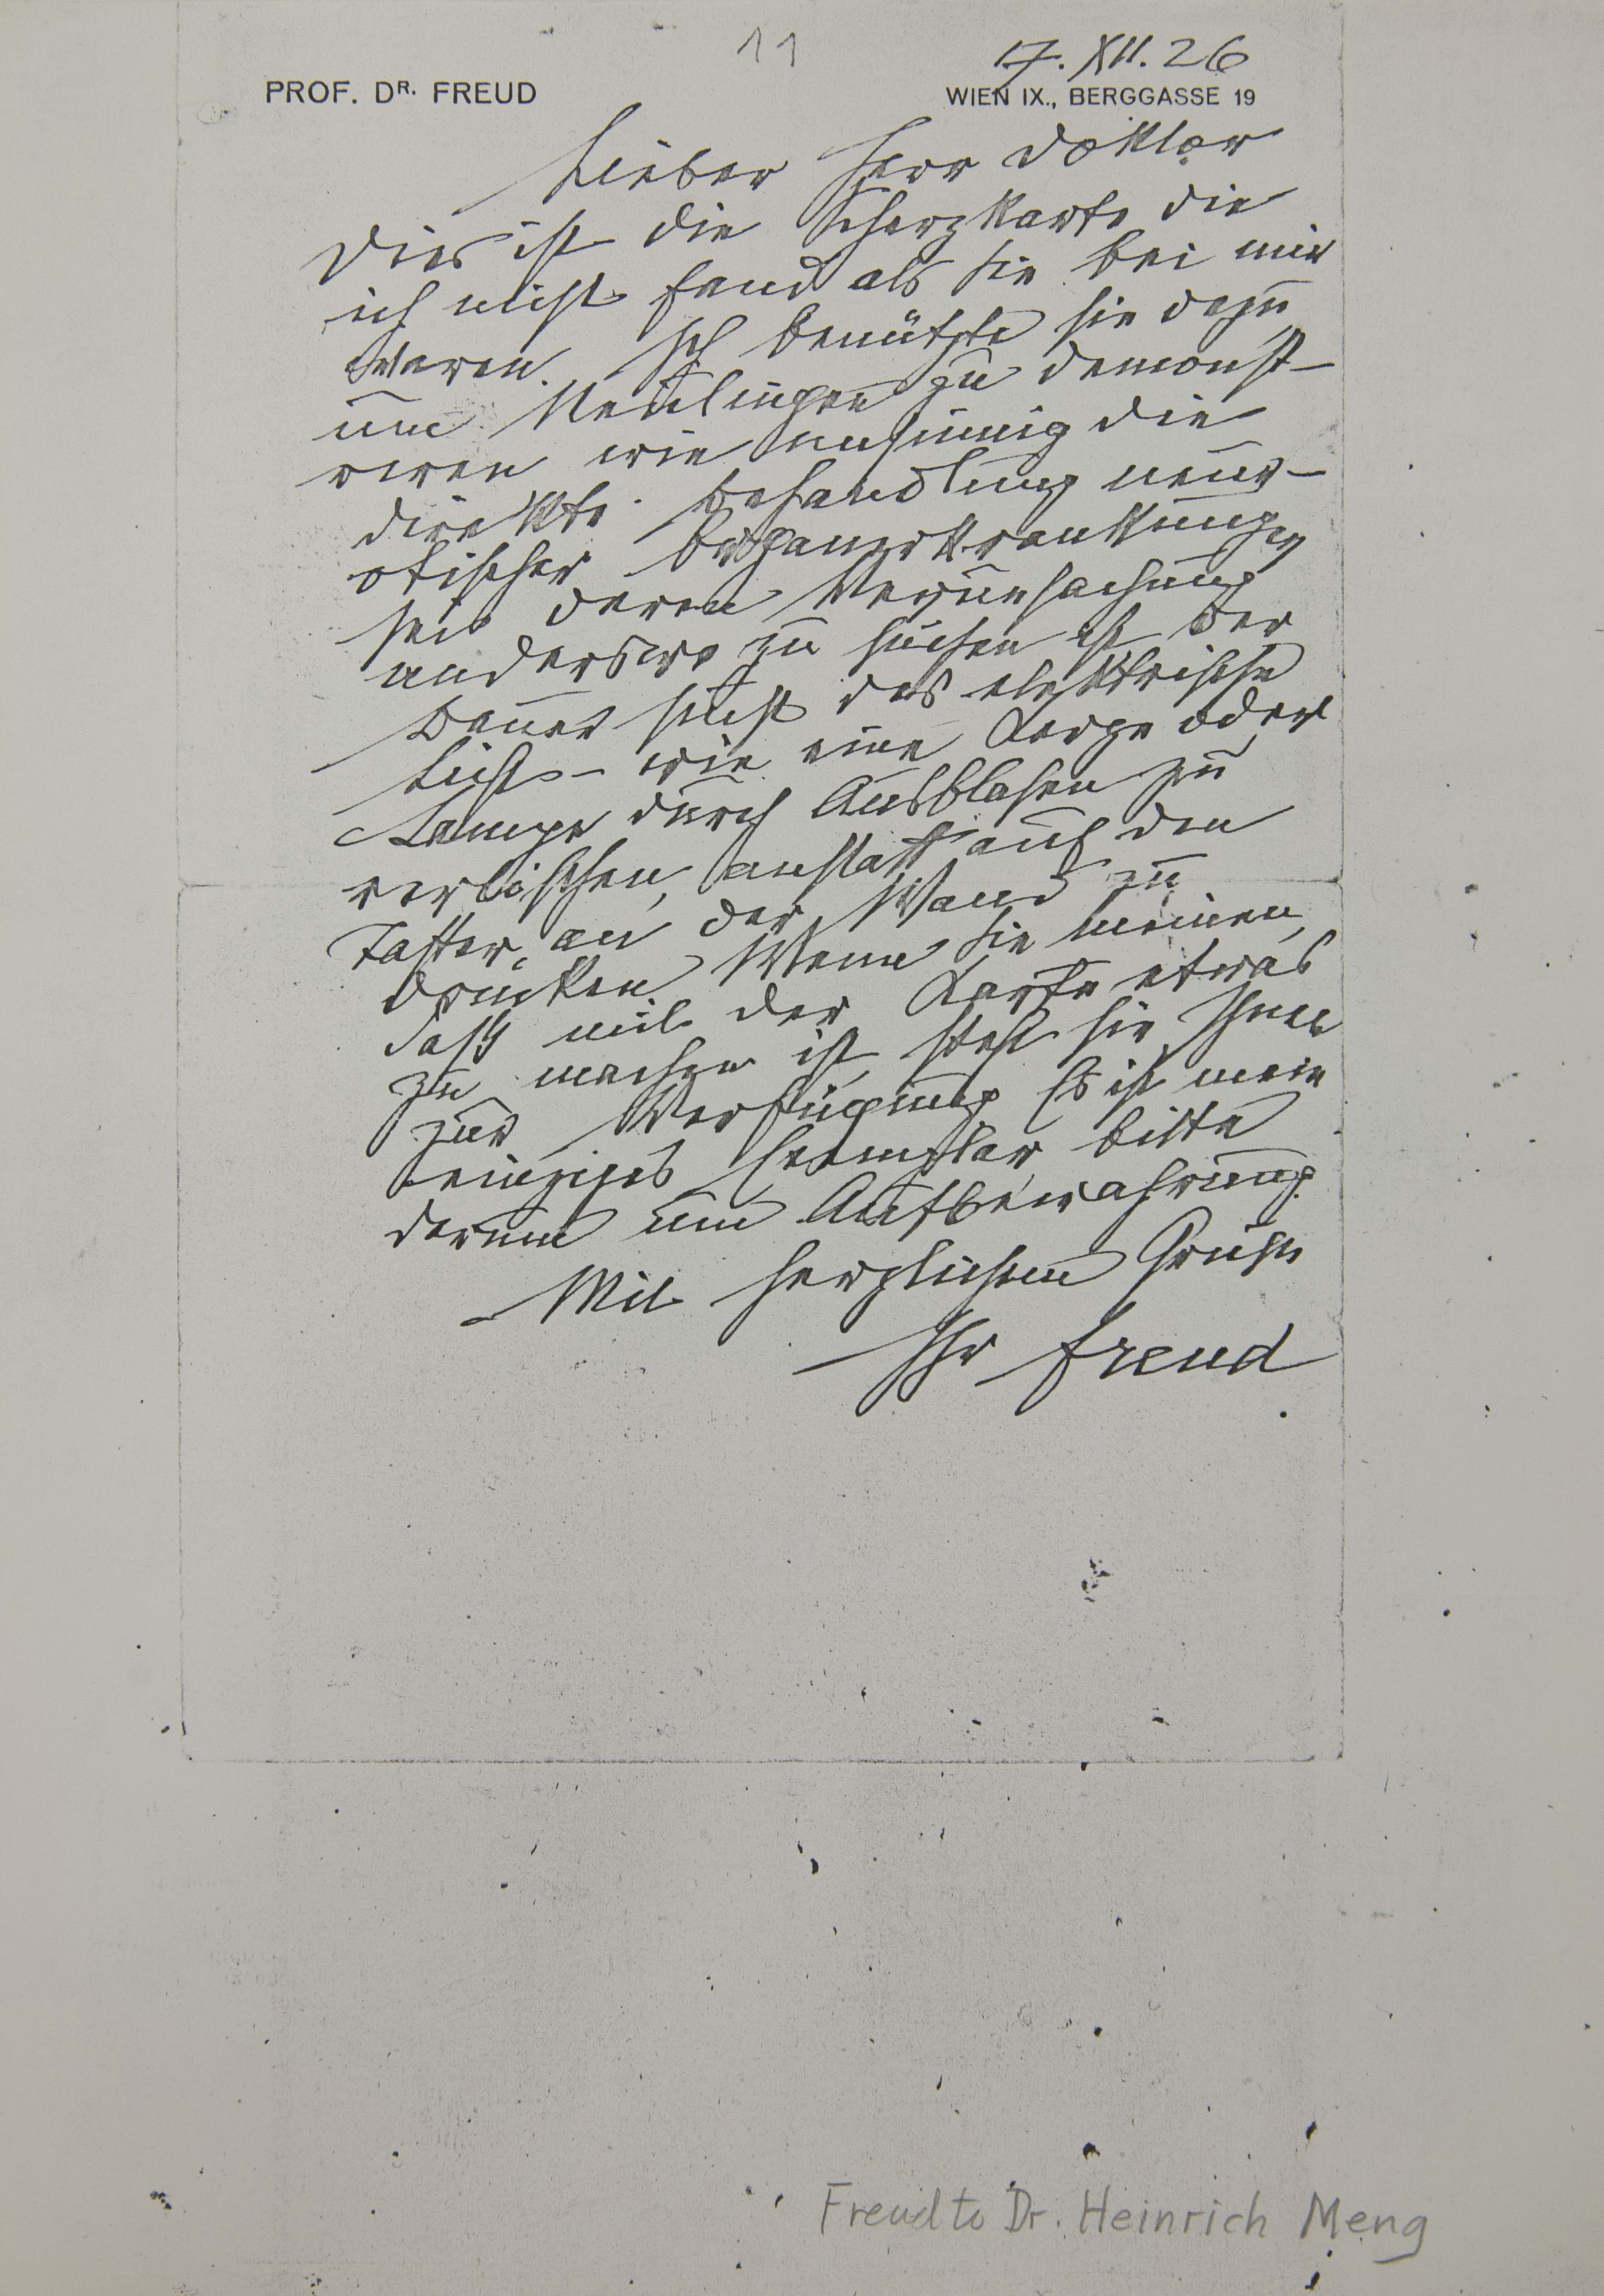 11
17. XII. 26
PROF. DR. FREUD
WIEN IX., BERGGASSE 19
Lieber Herr Doktor
Dies ist die Scherzkarte die
ich nicht fand als Sie bei mir
waren. Ich benützte sie dazu
um Neulingen zu demonst-
riren wie unsinnig die
direkte Behandlung neur-
otischer Organerkrankungen
sei deren Verursachung
anderswo zu suchen ist. Der
Bauer sucht das elektrische
Licht wie eine Kerze oder
Lampe durch Ausblasen zu
verlöschen, anstatt auf den
Taster an der Wand zu
drücken. Wenn Sie meinen,
daß mit der Karte etwas
zu machen ist, steht sie Ihnen
zur Verfügung. Es ist mein
einziges Exemplar, bitte
darum um Aufbewahrung.
Mit herzlichem Gruß
Ihr Freud
Freud to Dr. Heinrich Meng